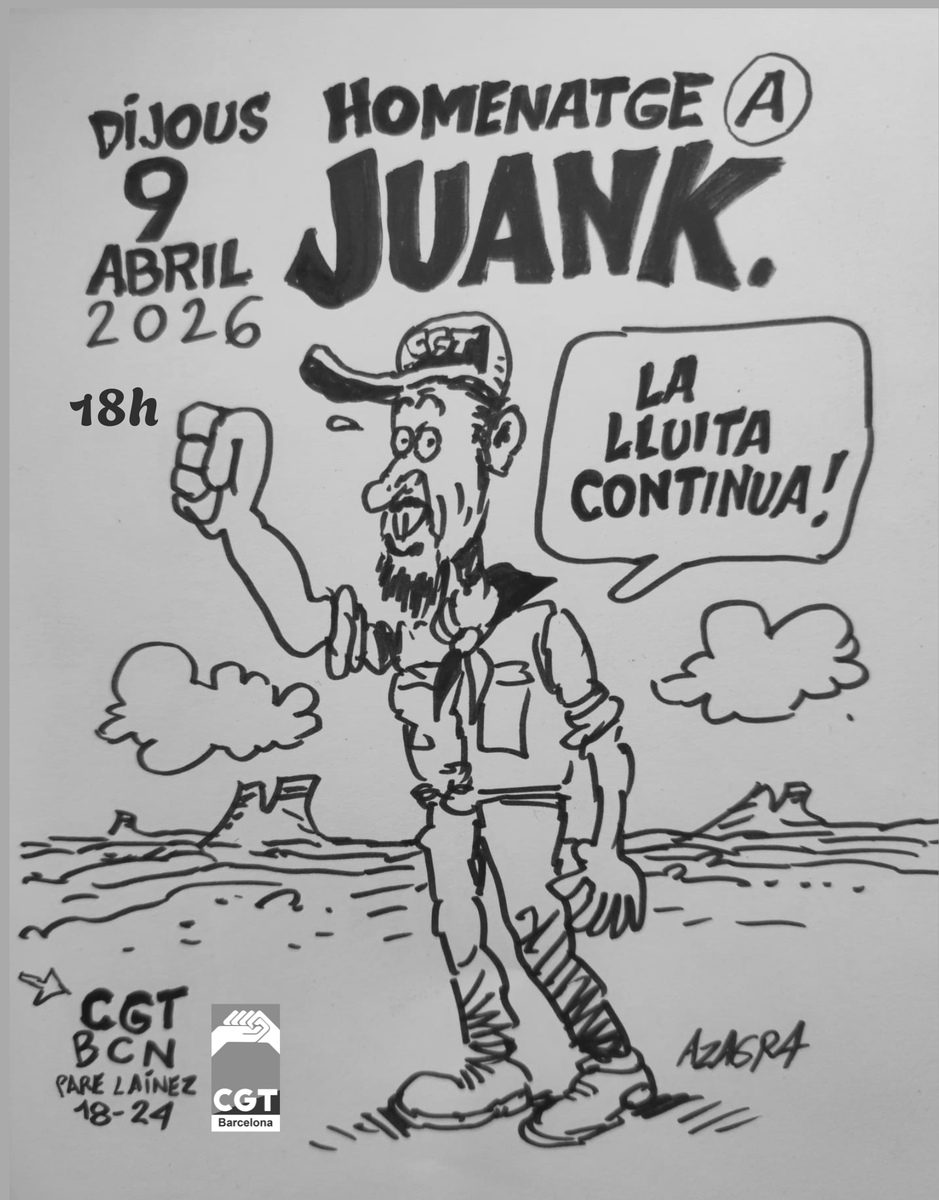 DiJOUS
9
ABRIL
2026
18h
HOMENATGE A
JUANK.
CGT
LA
LLUITA
CONTINUA!
CGT
BCN
PARE LAÍNEZ
18-24
CGT
Barcelona
AZAGRA